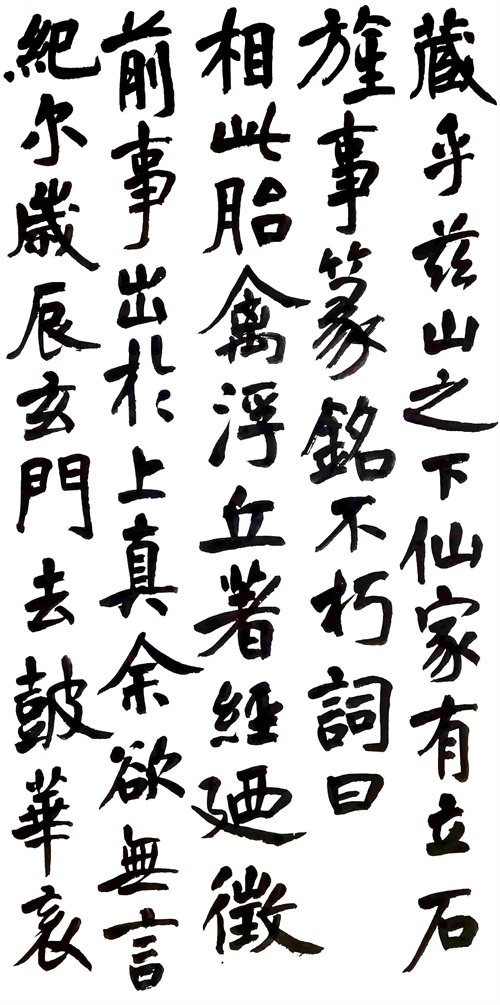 藏乎兹山之下仙家有立石
旌事篆銘不朽詞曰
相此胎禽浮丘著經廼徵
前事出於上真余欲無言
紀尔歲辰玄門去皷華表